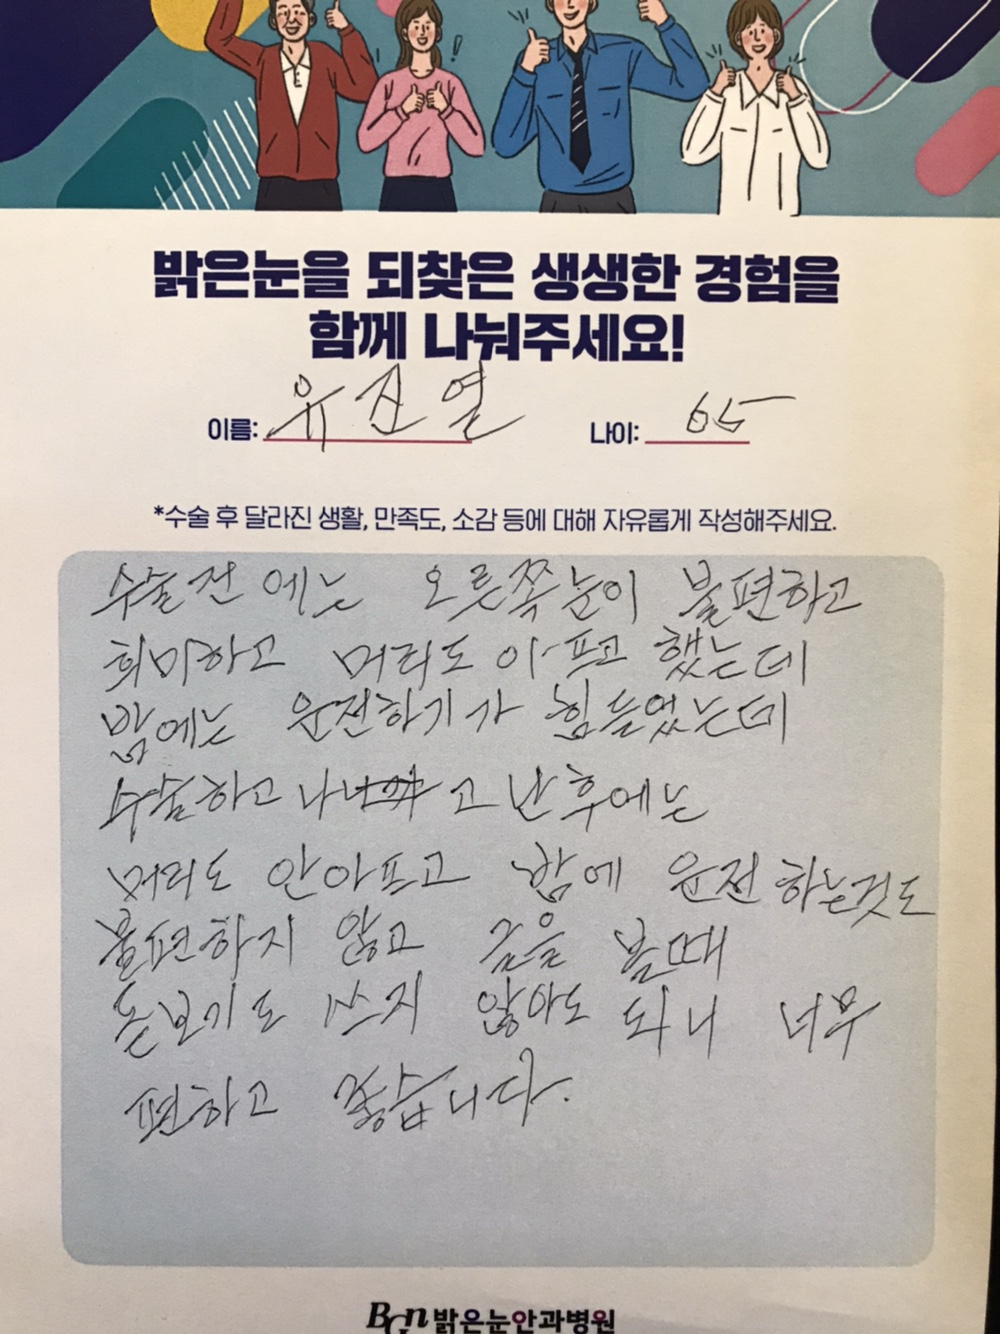 밝은눈을 되찾은 생생한 경험을
함께 나눠주세요!
이름: 유진열 나이: 65
*수술 후 달라진 생활, 만족도, 소감 등에 대해 자유롭게 작성해주세요.
수술전 에는 오른쪽눈이 불편하고
희미하고 머리도 아프고 했는데
밤에는 운전하기가 힘들었는데
수술하고 나 고 난 후에는
머리도 안아프고 밤에 운전 하는것도
불편하지 않고 글을 볼때
돋보기도 쓰지 않아도 되니 너무
편하고 좋습니다.
BGN 밝은눈안과병원